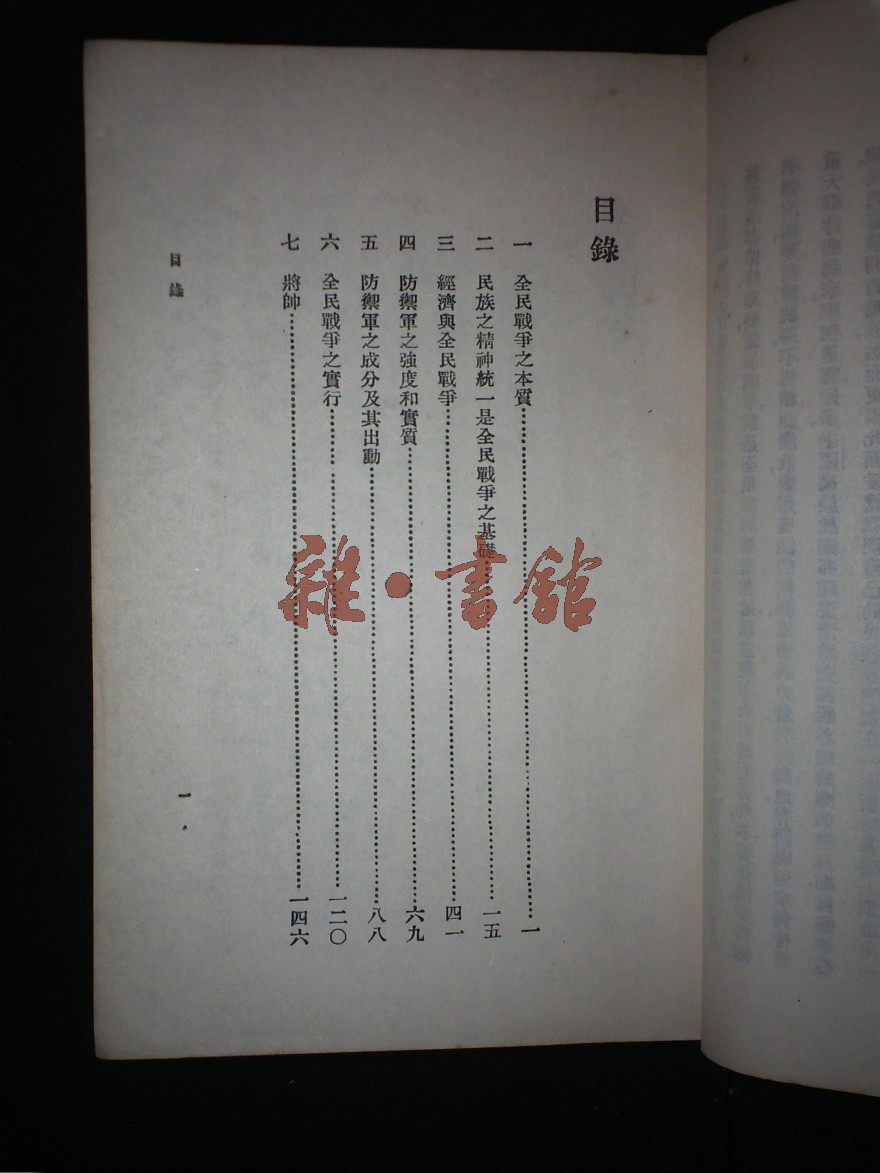 目錄
一 全民戰爭之本質……一
二 民族之精神統一是全民戰爭之基礎……一五
三 經濟與全民戰爭……四一
四 防禦軍之強度和實質……六九
五 防禦軍之成分及其出動……八八
六 全民戰爭之實行……一二〇
七 將帥……一四六
目錄
一
雜·書館